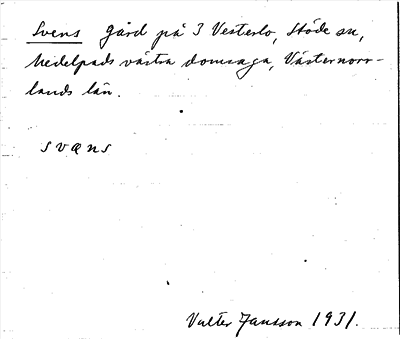 Svens gård på 3 Vesterlo, Stöde sn,
Medelpads västra domsaga, Västernorr-
lands län.
svæns
Valter Jansson 1931.